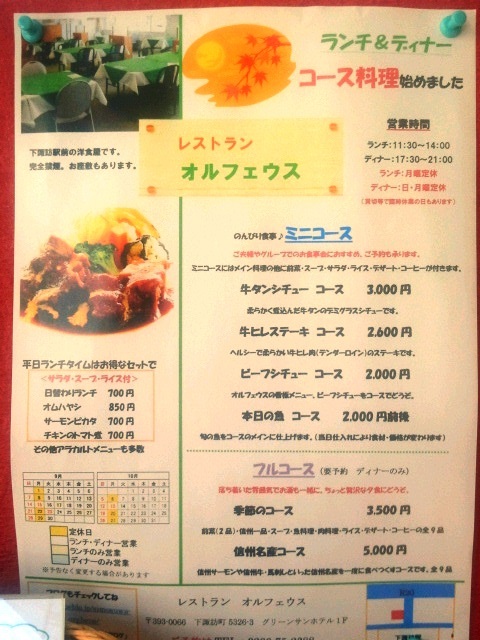 ランチ＆ディナー
コース料理始めました
下諏訪駅前の洋食屋です。
完全禁煙。お座敷もあります。
レストラン
オルフェウス
営業時間
ランチ:11:30～14:00
ディナー:17:30～21:00
ランチ:月曜定休
ディナー:日・月曜定休
のんびり食事♪ミニコース
ご夫婦やグループでのお食事会におすすめ。ご予約も承ります。
ミニコースにはメイン料理の他に前菜・スープ・サラダ・ライス・デザート・コーヒーが付きます。
牛タンシチュー コース 3.000円
柔らかく煮込んだ牛タンのデミグラスシチューです。
牛ヒレステーキ コース 2.600円
ヘルシーで柔らかい牛ヒレ肉(テンダーロイン)のステーキです。
ビーフシチュー コース 2.000円
オルフェウスの看板メニュー、ビーフシチューをコースでどうぞ。
本日の魚 コース 2.000円前後
旬の魚をコースのメインに仕上げます。(当日仕入れにより食材・価格が変わります)
平日ランチタイムはお得なセットで
<サラダ・スープ・ライス付>
日替わりランチ 700円
オムハヤシ 850円
サーモンピカタ 700円
チキンのトマト煮 700円
その他アラカルトメニューも多数
フルコース(要予約 ディナーのみ)
落ち着いた雰囲気でお酒も一緒に、ちょっと贅沢な夕食にどうぞ。
季節のコース 3.500円
前菜(2品)・信州一品・スープ・魚料理・肉料理・ライス・デザート・コーヒーの全9品
信州名産コース 5.000円
信州サーモンや信州牛・馬刺しといった信州名産を一度に食べつくすコースです。全9品
9月
10月
定休日
ランチ・ディナー営業
ランチのみ営業
ディナーのみ営業
※予告なく変更する場合があります
レストラン オルフェウス
〒393-0066 下諏訪町5326-3 グリーンサンホテル1F
R20